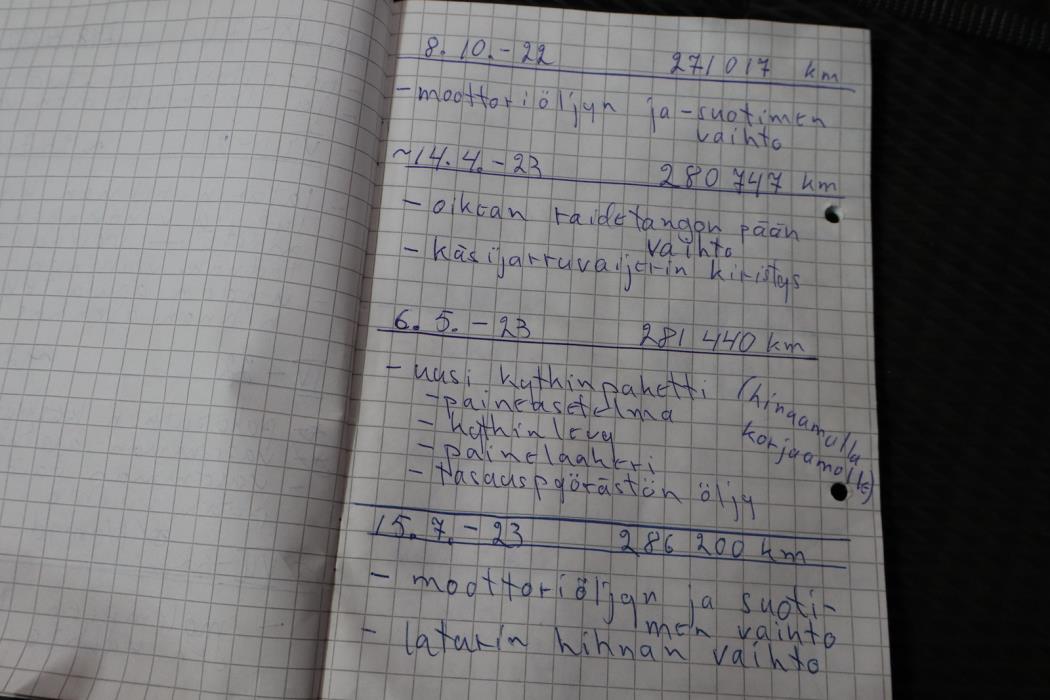 8. 10. - 22 271 017 km
- moottoriöljyn ja -suotimen
vaihto
~14. 4. - 23 280 747 km
- oikean raidetangon pään
vaihto
- käsijarruvaijerin kiristys
6. 5. - 23 281 440 km
- uusi kytkinpaketti (hinaamalla
korjaamolle)
- paineasetelma
- kytkinlevy
- painelaakeri
- tasauspyörästön öljy
15. 7. - 23 286 200 km
- moottoriöljyn ja suoti-
men vaihto
- laturin hihnan vaihto